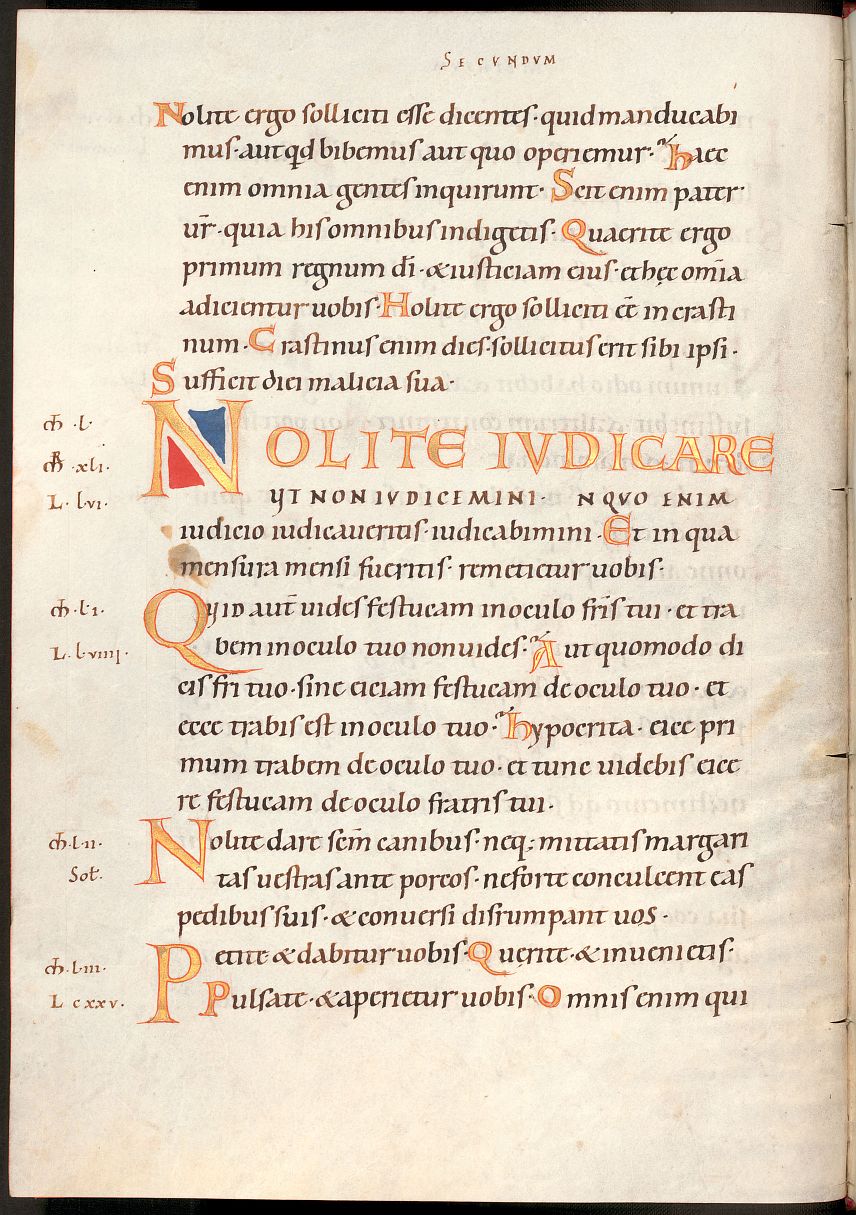 SECUNDUM
Nolite ergo solliciti esse dicentes· quid manducabi
mus· aut qđ bibemus aut quo operiemur· haec
enim omnia gentes inquirunt· Scit enim pater
ur̄· quia his omnibus indigetis· Quaerite ergo
primum regnum dī· & iusticiam eius· et hęc om̄ia
adicientur uobis· Nolite ergo solliciti eē in crasti
num· Crastinus enim dies· sollicitus erit sibi ipsi·
Sufficit diei malicia sua·
ch̄ ·l· NOLITE IVDICARE
ꝶ ·xli·
L· lvi· VT NON IVDICEMINI· NQVO ENIM
iudicio iudicaueritis· iudicabimini· Et in qua
mensura mensi fueritis· remetietur uobis·
ch̄ ·l·i· QVID aut̄ uides festucam in oculo fr̄is tui· et tra
L· l·viiii· bem in oculo tuo non uides· Aut quomodo di
cis fr̄i tuo· sine eiciam festucam de oculo tuo· et
ecce trabis est in oculo tuo· hypocrita· eice pri
mum trabem de oculo tuo· et tunc uidebis eice
re festucam de oculo fratris tui·
ch̄·l·ii· Nolite dare sc̄m canibus· neq; mittatis margari
Sol̄· tas uestras ante porcos· ne forte conculcent eas
pedibus suis· & conuersi disrumpant uos·
ch̄·l·iii· Petite & dabitur uobis· Querite· & inuenietis·
L cxxv· Pulsate· & aperietur uobis· Omnis enim qui